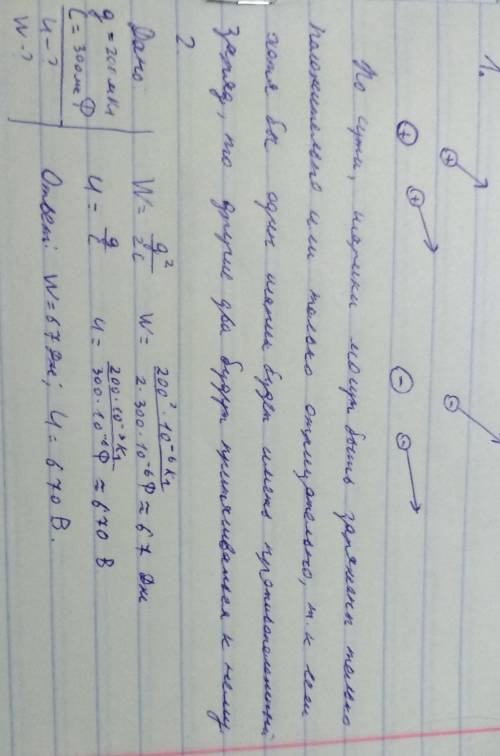 1.
+ +
+
- -
-
По сути, шарики могут быть заряжены только
положительно или только отрицательно, т. к если
хотя бы один шарик будет иметь противоположный
заряд, то другие два будут притягиваться к нему.
2.
Дано:
q = 200 мКл
C = 300 мк Ф
U - ?
W - ?
W = q²/2C W = 200² · 10⁻⁶ Кл / 2 · 300 · 10⁻⁶ Ф ≈ 67 Дж
U = q/C U = 200 · 10⁻³ Кл / 300 · 10⁻⁶ Ф ≈ 670 В
Ответ: W = 67 Дж; U = 670 В.